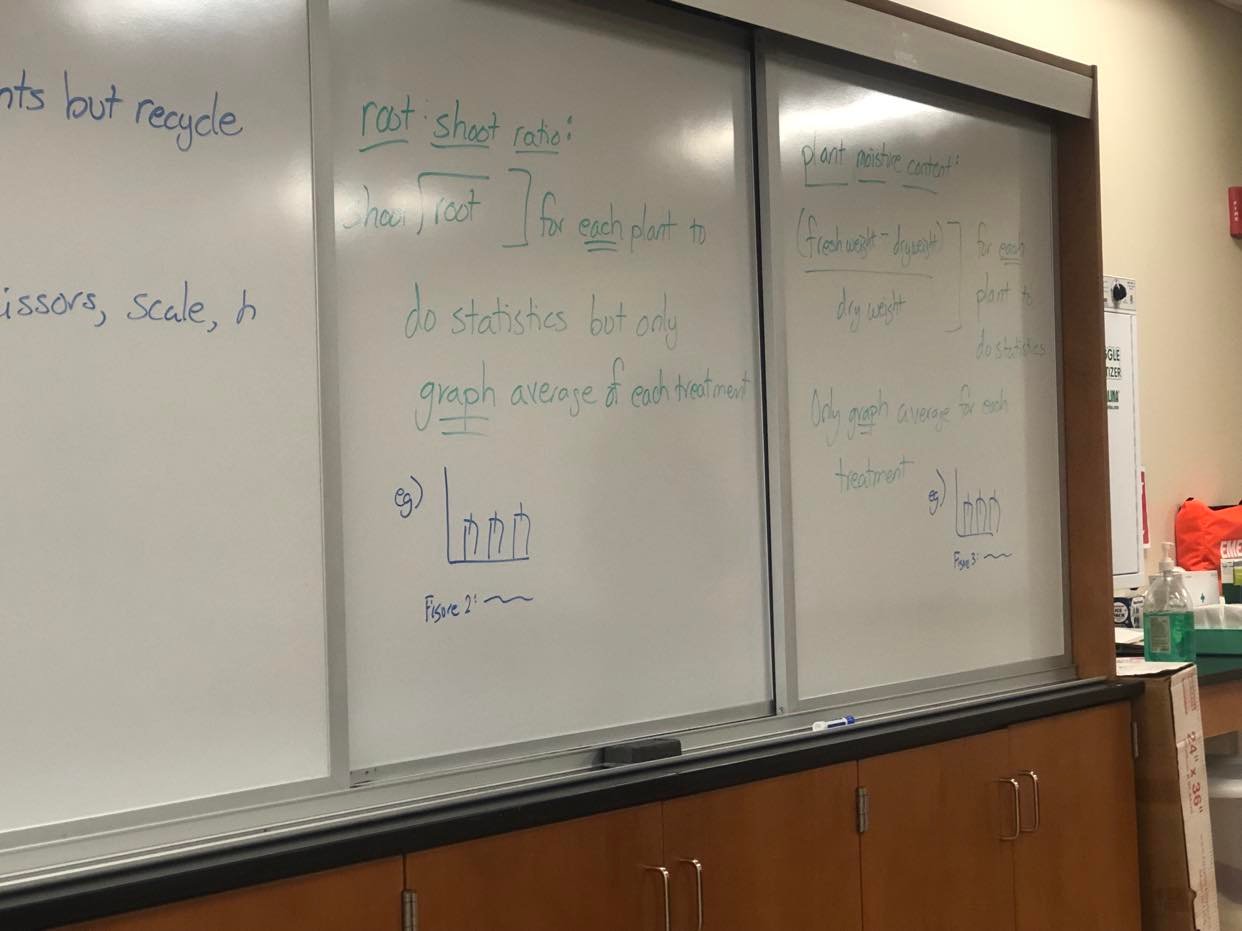 nts but recycle
issors, scale, h
root : shoot ratio:
shoot root
for each plant to
do statistics but only
graph average of each treatment
eg)
Figure 2:
plant moisture content:
(fresh weight - dry weight)
dry weight
for each
plant to
do statistics
Only graph average for each
treatment
eg)
Figure 3:
FIRE
GGLE
TIZER
EME
24" x 36"